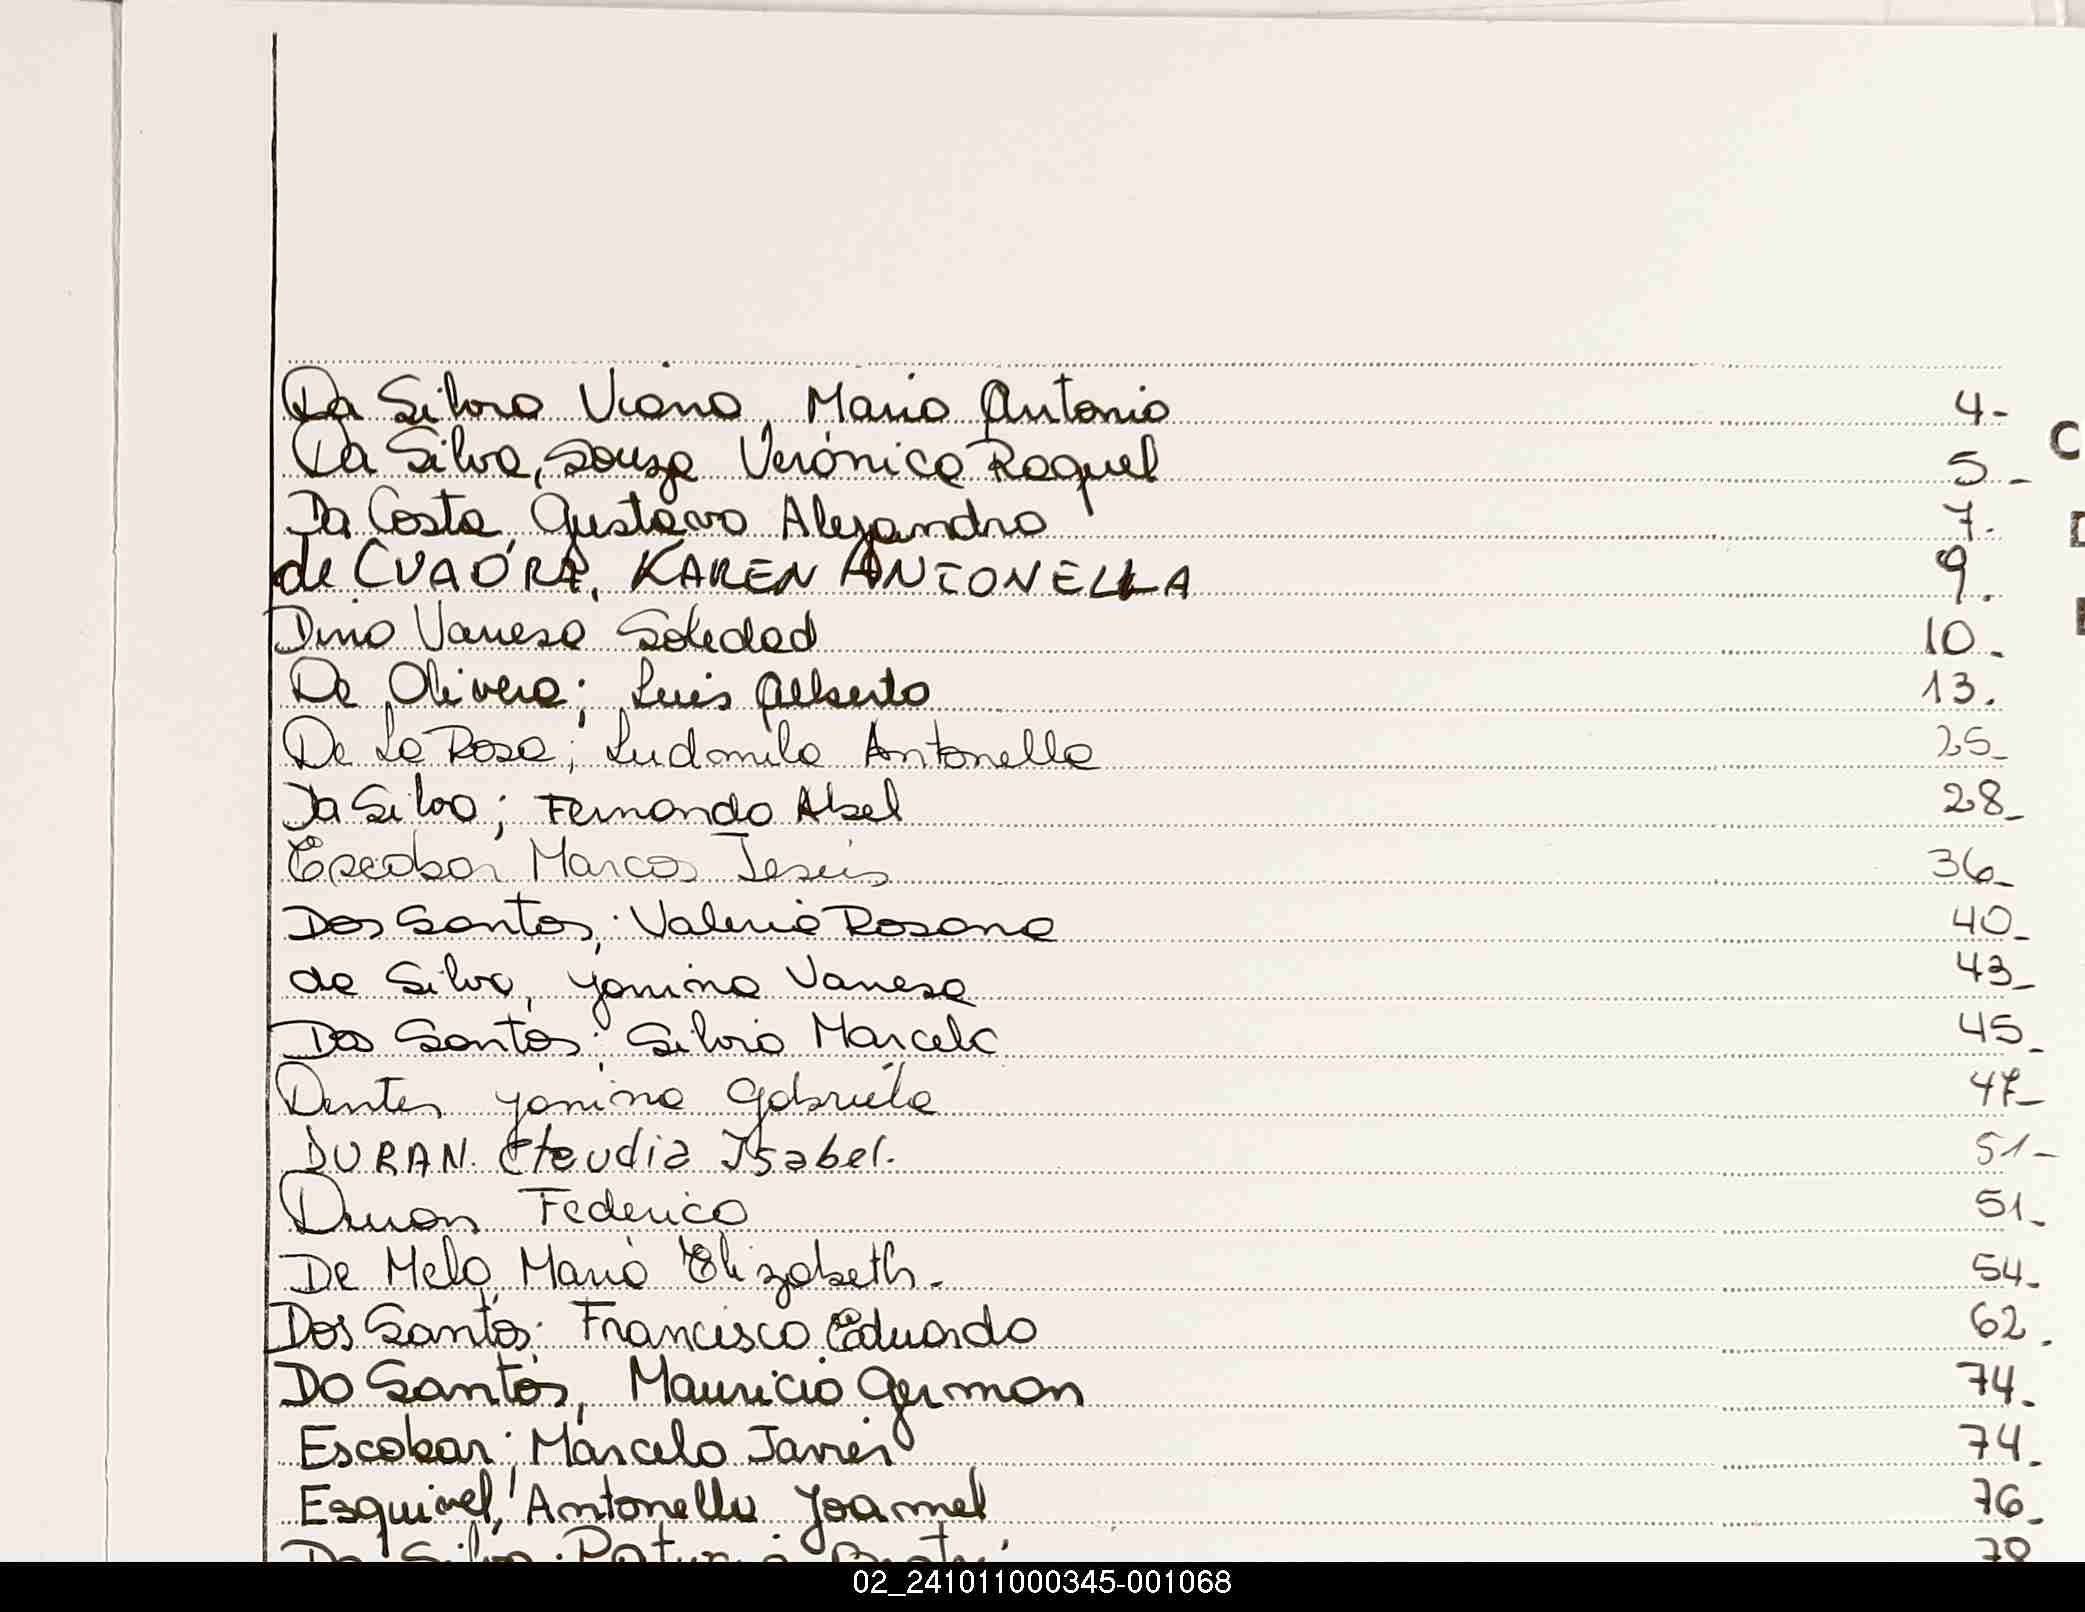 Da Silva Viana, Mario Antonio 4-
Da Silva, Souza Verónica Raquel 5-
Da Costa, Gustavo Alejandro 7-
de CUADRA, KAREN ANTONELLA 9.
Dino Vanesa Soledad 10-
De Olivera; Luis Alberto 13.
De La Rosa; Ludmila Antonella 25-
Da Silva; Fernando Abel 28-
Escobar Marcos Jesús 36-
Dos Santos; Valeria Rosana 40-
da Silva, Yanina Vanesa 43-
Dos Santos; Silvia Marcela 45-
Yanina Gabriela 47-
DURAN. Claudia Isabel. 51-
Duran Federico 51-
De Melo, Maria Elizabeth. 54-
Dos Santos; Francisco Eduardo 62.
Do Santos, Mauricio German 74.
Escobar; Marcelo Javier 74.
Esquivel, Antonella Yoamel 76-
Da Silva; 78
C
02_241011000345-001068